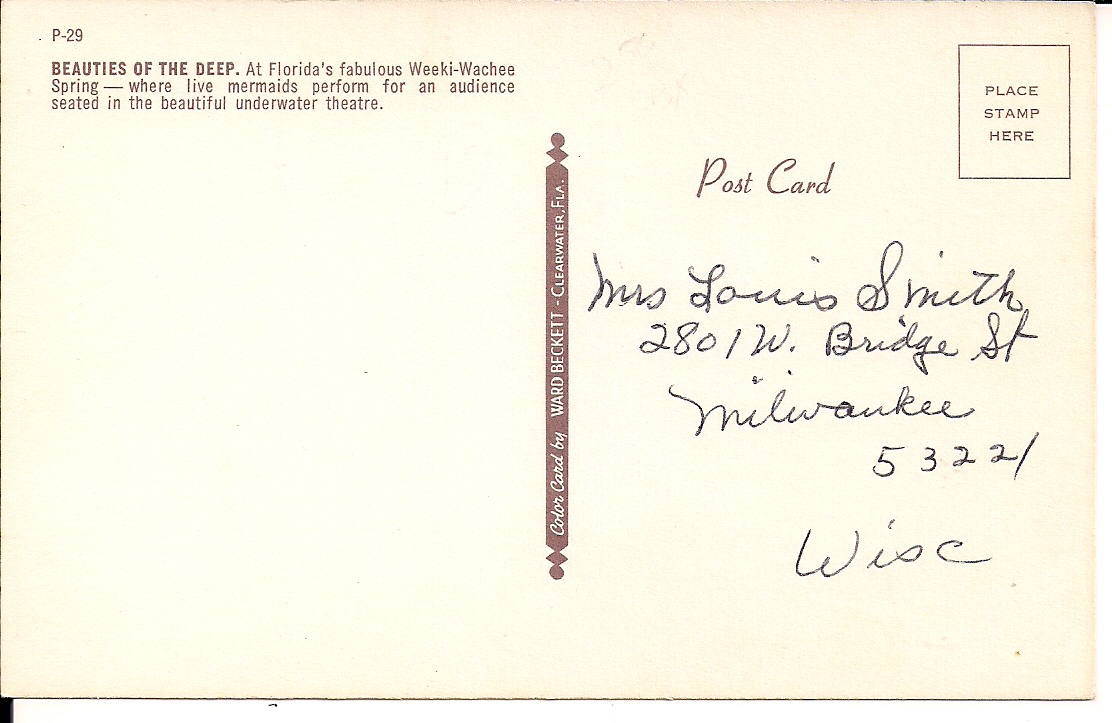 P-29
BEAUTIES OF THE DEEP. At Florida's fabulous Weeki-Wachee
Spring — where live mermaids perform for an audience
seated in the beautiful underwater theatre.
PLACE
STAMP
HERE
Post Card
Color Card by WARD BECKETT - CLEARWATER, FLA.
Mrs Louis Smith
2801 W. Bridge St
Milwaukee
53221
Wisc